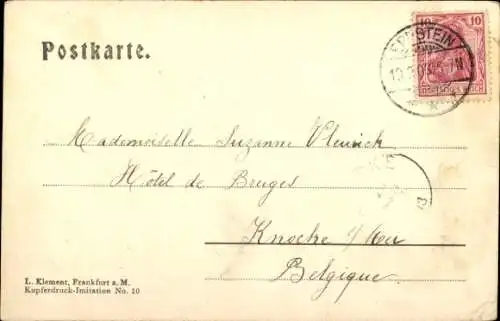 Postkarte.
10 10
EPPSTEIN
DEUTSCHES REICH
Mademoiselle Suzanne
Hôtel de Bruges
Knocke s/Mer
Belgique.
L. Klement, Frankfurt a. M.
Kupferdruck-Imitation No. 10